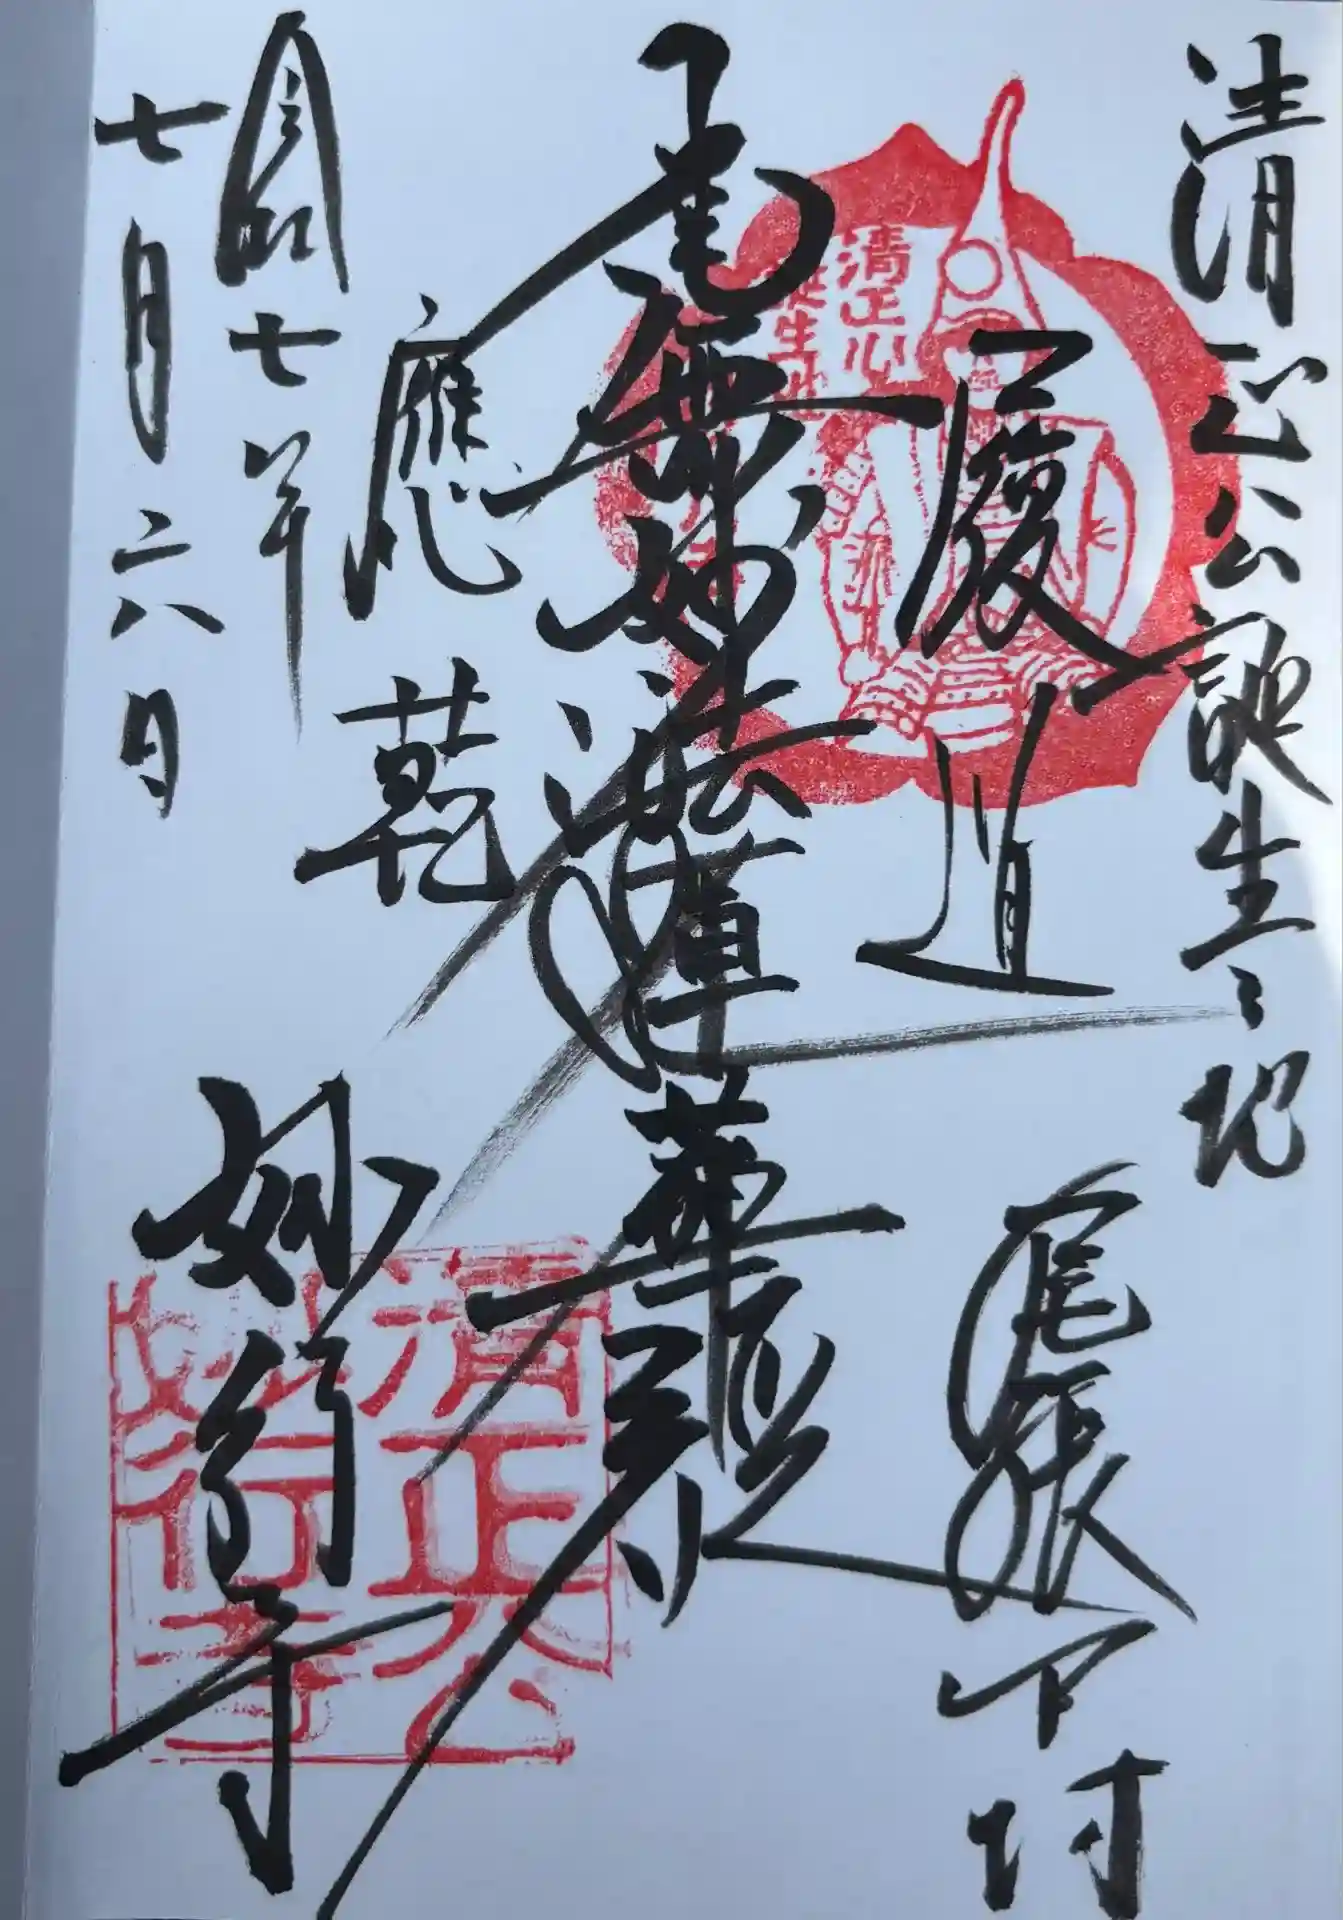 清正公誕生之地
履道
尾張中村
南無妙法蓮華経
應乾
妙行寺
令和七年
七月二八日
清正公
誕生地
清正公
妙行寺